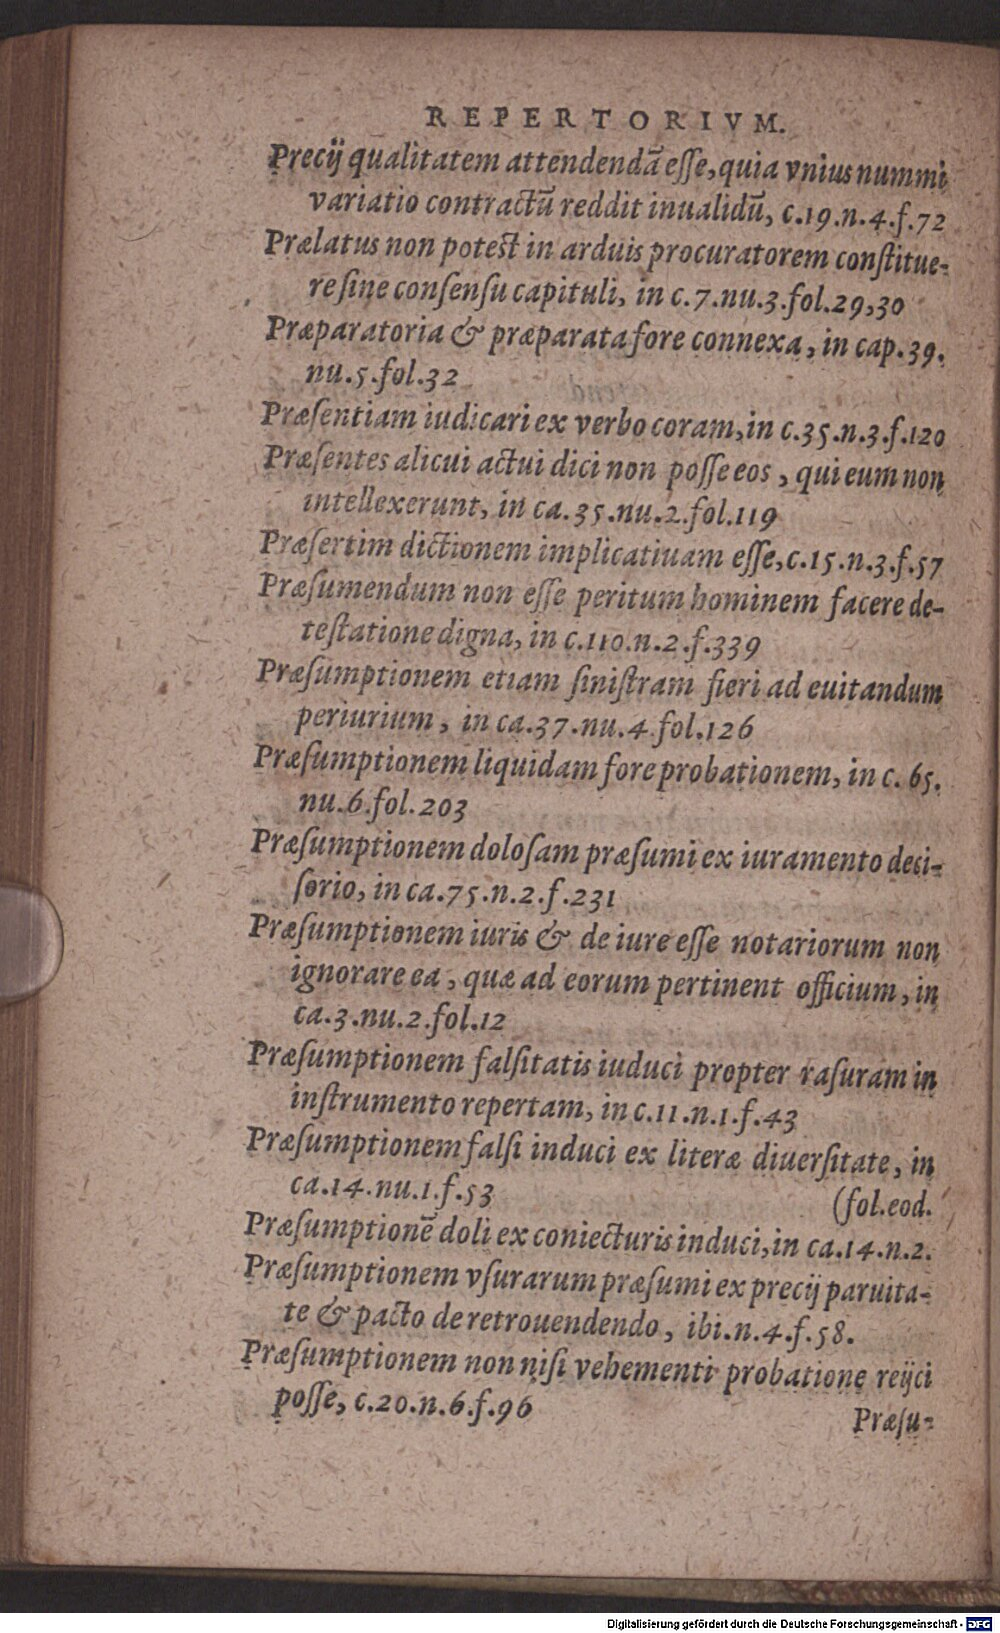 REPERTORIVM.
Precij qualitatem attendendã eſſe, quia vnius nummi
variatio contractũ reddit inualidũ, c.19.n.4.f.72
Prælatus non poteſt in arduis procuratorem conſtitue-
re ſine conſenſu capituli, in c.7.nu.3.fol.29,30
Præparatoria & præparata fore connexa, in cap.39.
nu.5.fol.32
Præſentiam iudicari ex verbo coram, in c.35.n.3.f.120
Præſentes alicui actui dici non poſſe eos, qui eum non
intellexerunt, in ca.35.nu.2.fol.119
Præſertim dictionem implicatiuam eſſe, c.15.n.3.f.57
Præſumendum non eſſe peritum hominem facere de-
teſtatione digna, in c.110.n.2.f.339
Præſumptionem etiam ſiniſtram fieri ad euitandum
periurium, in ca.37.nu.4.fol.126
Præſumptionem liquidam fore probationem, in c. 65.
nu.6.fol.203
Præſumptionem doloſam præſumi ex iuramento deci-
ſorio, in ca.75.n.2.f.231
Præſumptionem iuris & de iure eſſe notariorum non
ignorare ea, quæ ad eorum pertinent officium, in
ca.3.nu.2.fol.12
Præſumptionem falſitatis iuduci propter raſuram in
inſtrumento repertam, in c.11.n.1.f.43
Præſumptionem falſi induci ex literæ diuerſitate, in
ca.14.nu.1.f.53 (fol.eod.
Præſumptionẽ doli ex coniecturis induci, in ca.14.n.2.
Præſumptionem vſurarum præſumi ex precij paruita-
te & pacto de retrouendendo, ibi.n.4.f.58.
Præſumptionem non niſi vehementi probatione reijci
poſſe, c.20.n.6.f.96
Præſu-
Digitalisierung gefördert durch die Deutsche Forschungsgemeinschaft - DFG